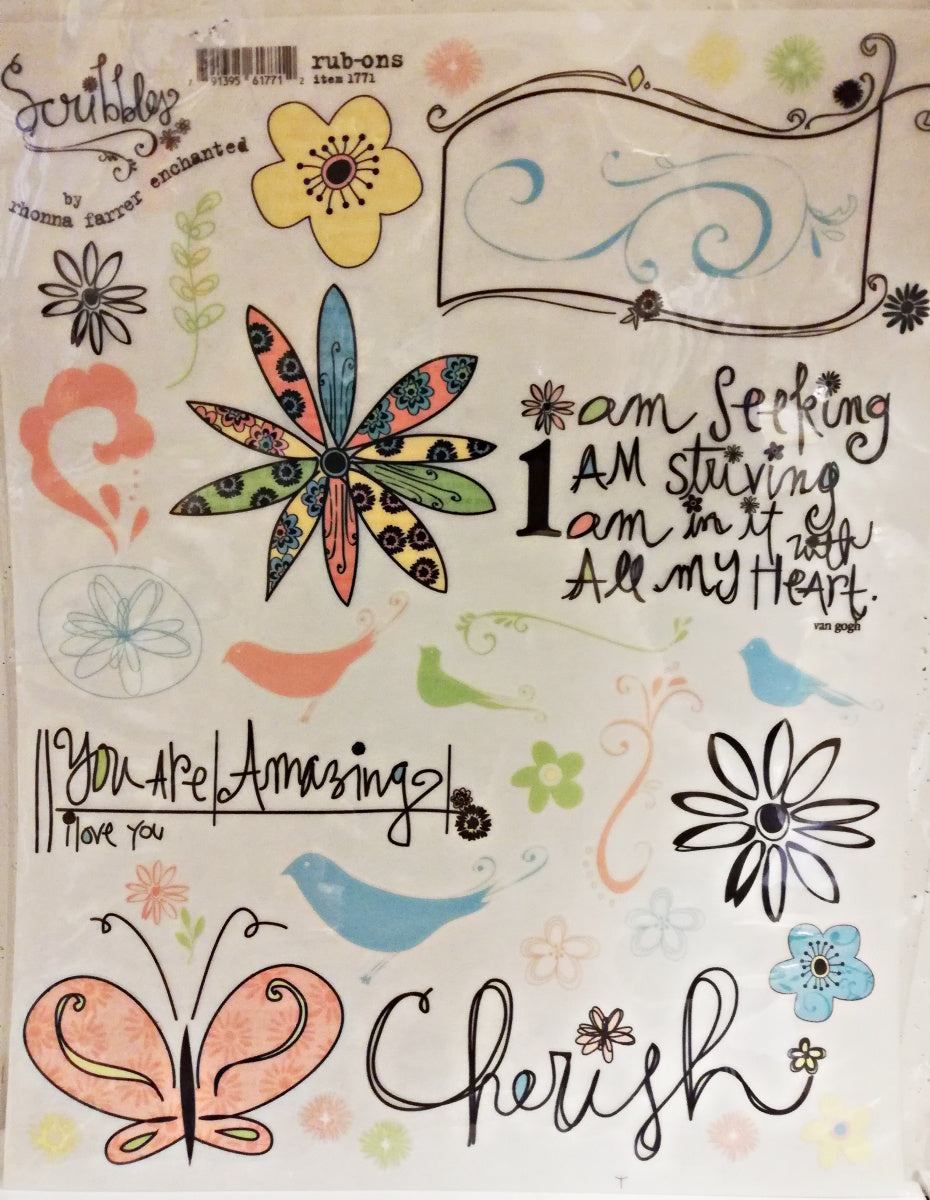 Scribbles
by
rhonna farrer enchanted
7 91395 61771 2
rub-ons
item 1771
I am Seeking
AM striving
am in it with
All my HeArt.
van gogh
You Are Amazing
i love you
Cherish